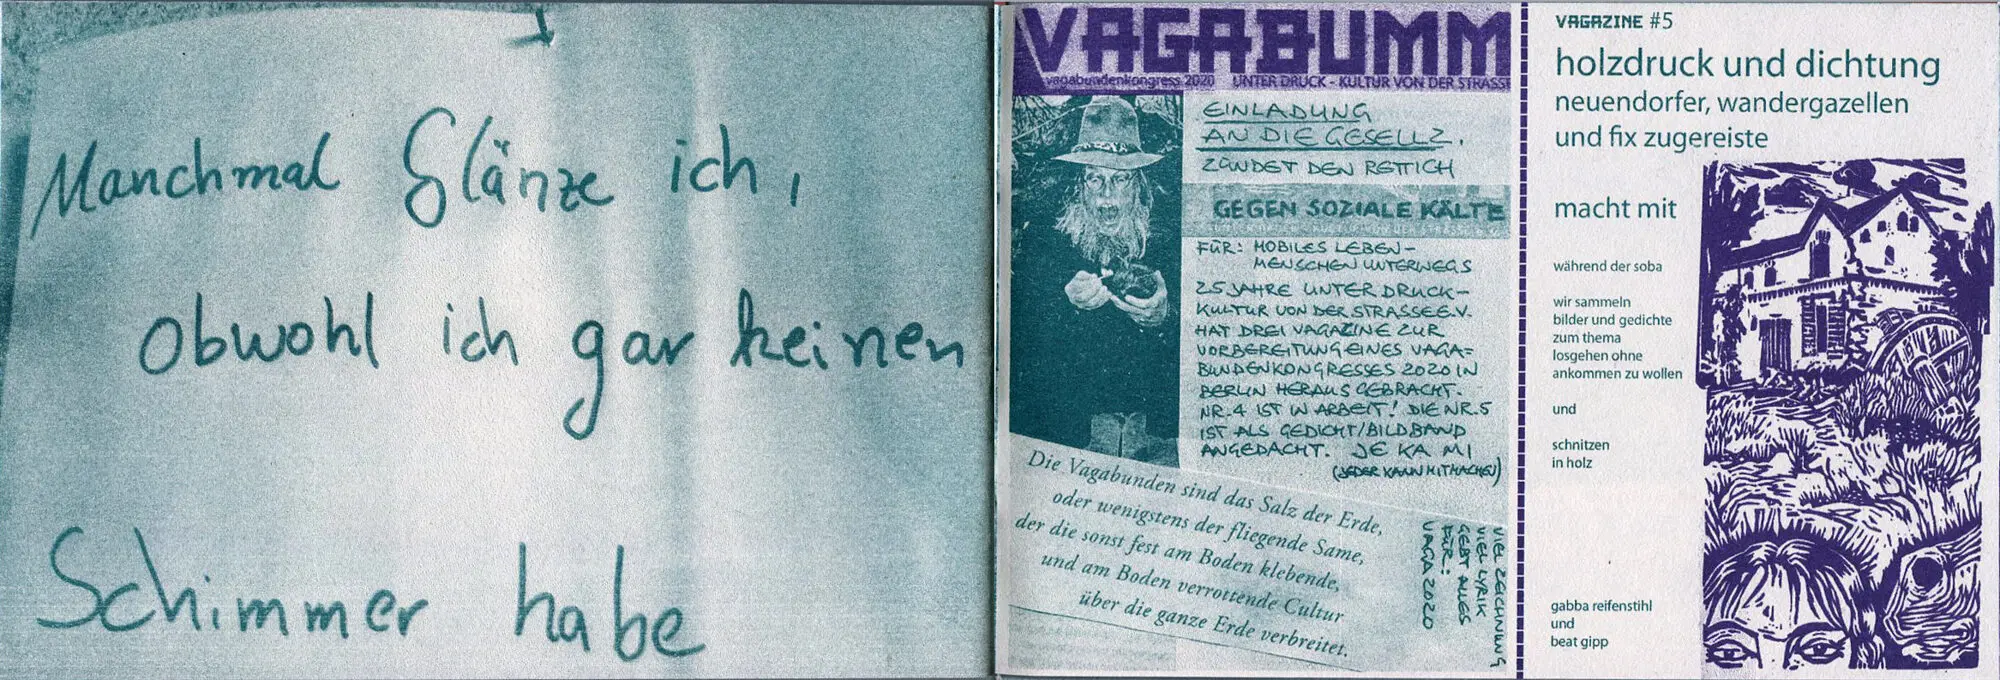 Manchmal Glänze ich,
obwohl ich gar keinen
Schimmer habe
VAGABUMM
vagabundenkongress 2020 UNTER DRUCK - KULTUR VON DER STRASSE
EINLADUNG
AN DIE GESELLZ.
ZÜNDET DEN RETTICH
GEGEN SOZIALE KÄLTE
FÜR: MOBILES LEBEN -
MENSCHEN UNTERWEGS
25 JAHRE UNTER DRUCK -
KULTUR VON DER STRASSE E.V.
HAT DREI VAGAZINE ZUR
VORBEREITUNG EINES VAGA=
BUNDENKONGRESSES 2020 IN
BERLIN HERAUS GEBRACHT.
NR. 4 IST IN ARBEIT! DIE NR. 5
IST ALS GEDICHT/BILDBAND
ANGEDACHT. JE KA MI
(JEDER KANN MITMACHEN)
Die Vagabunden sind das Salz der Erde,
oder wenigstens der fliegende Same,
der die sonst fest am Boden klebende,
und am Boden verrottende Cultur
über die ganze Erde verbreitet.
VIEL ZEICHNUNG
VIEL LYRIK
GEBT ALLES
FÜR:
VAGA 2020
VAGAZINE #5
holzdruck und dichtung
neuendorfer, wandergazellen
und fix zugereiste
macht mit
während der soba
wir sammeln
bilder und gedichte
zum thema
losgehen ohne
ankommen zu wollen
und
schnitzen
in holz
gabba reifenstihl
und
beat gipp